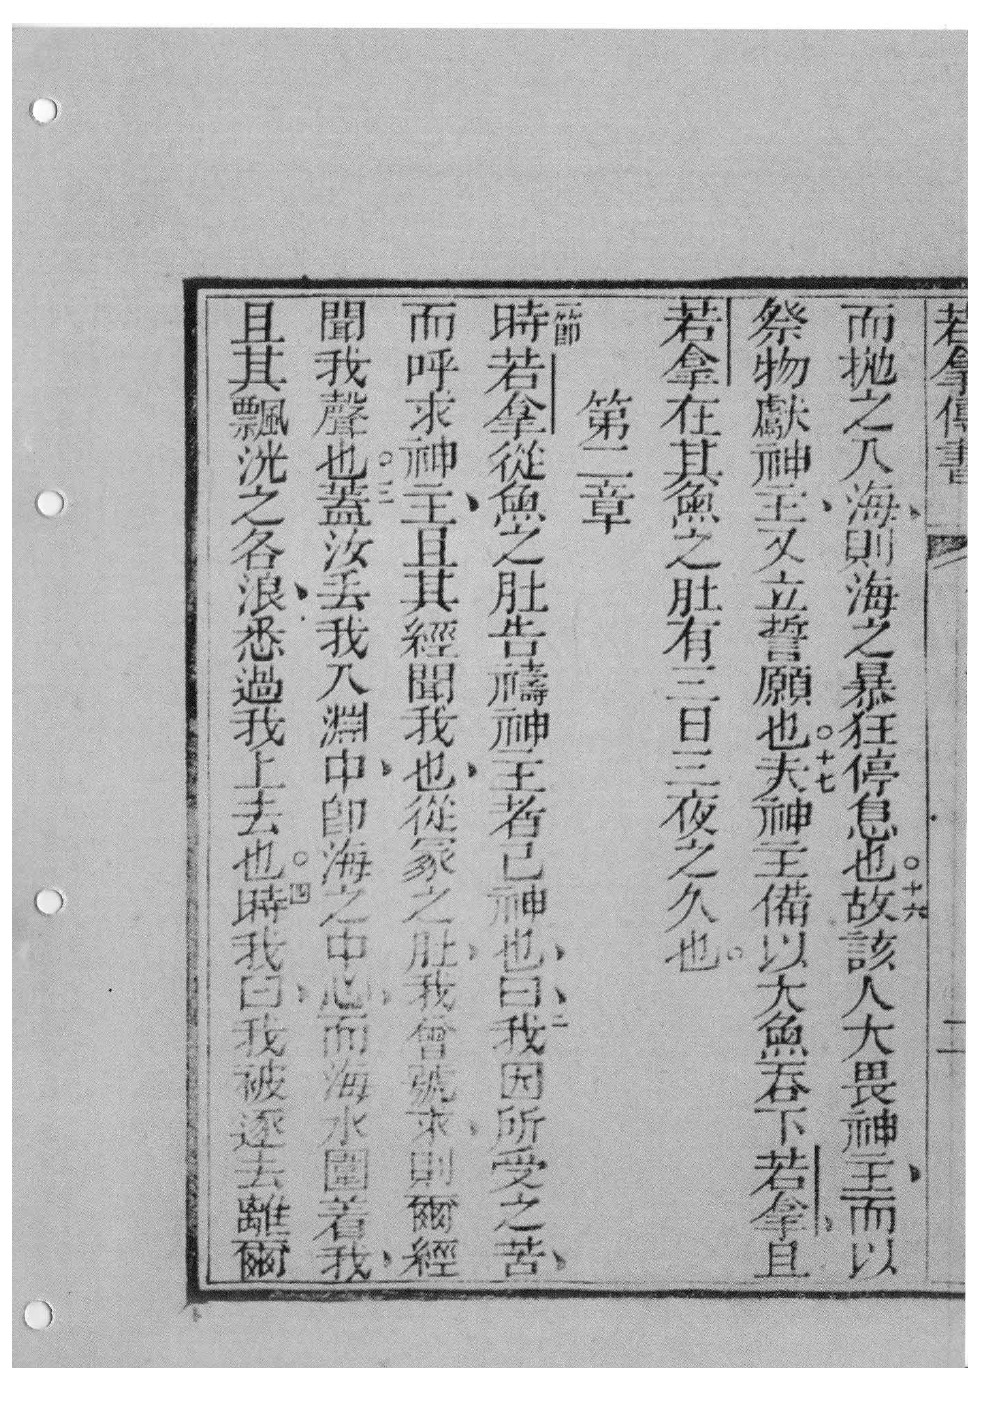 若拿傳書 二
而拋之入海、則海之暴狂停息也。十六故該人大畏神主、而以
祭物獻神主、又立誓願也。十七夫神主備以大魚吞下若拿、且
若拿在其魚之肚有三日三夜之久也。
第二章
一節時若拿從魚之肚告禱神主者己神也、曰、二我因所受之苦、
而呼求神主、且其經聞我也、從冢之肚、我曾號求、則爾經
聞我聲也。三蓋汝丟我入淵中、即海之中心、而海水圍着我、
且其飄洸之各浪、悉過我上去也。四時我曰、我被逐去離爾